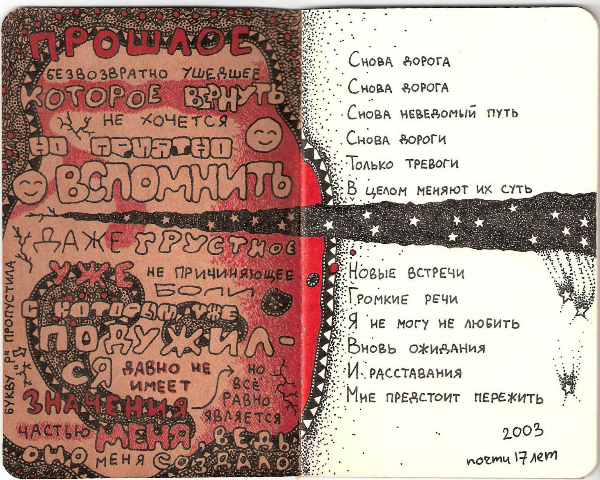 ПРОШЛОЕ
БЕЗВОЗВРАТНО УШЕДШЕЕ
КОТОРОЕ ВЕРНУТЬ
НЕ ХОЧЕТСЯ
НО ПРИЯТНО
ВСПОМНИТЬ
ДАЖЕ ГРУСТНОЕ
УЖЕ НЕ ПРИЧИНЯЮЩЕЕ
БОЛИ
С КОТОРЫМ УЖЕ
ПОДУЖИЛ-
СЯ ДАВНО НЕ
ИМЕЕТ
ЗНАЧЕНИЯ
НО
ВСЁ
РАВНО
ЯВЛЯЕТСЯ
ЧАСТЬЮ МЕНЯ ВЕДЬ
ОНО МЕНЯ СОЗДАЛО
БУКВУ "Р" ПРОПУСТИЛА
Снова дорога
Снова дорога
Снова неведомый путь
Снова дороги
Только тревоги
В целом меняют их суть
Новые встречи
Громкие речи
Я не могу не любить
Вновь ожидания
И расставания
Мне предстоит пережить
2003
почти 17 лет